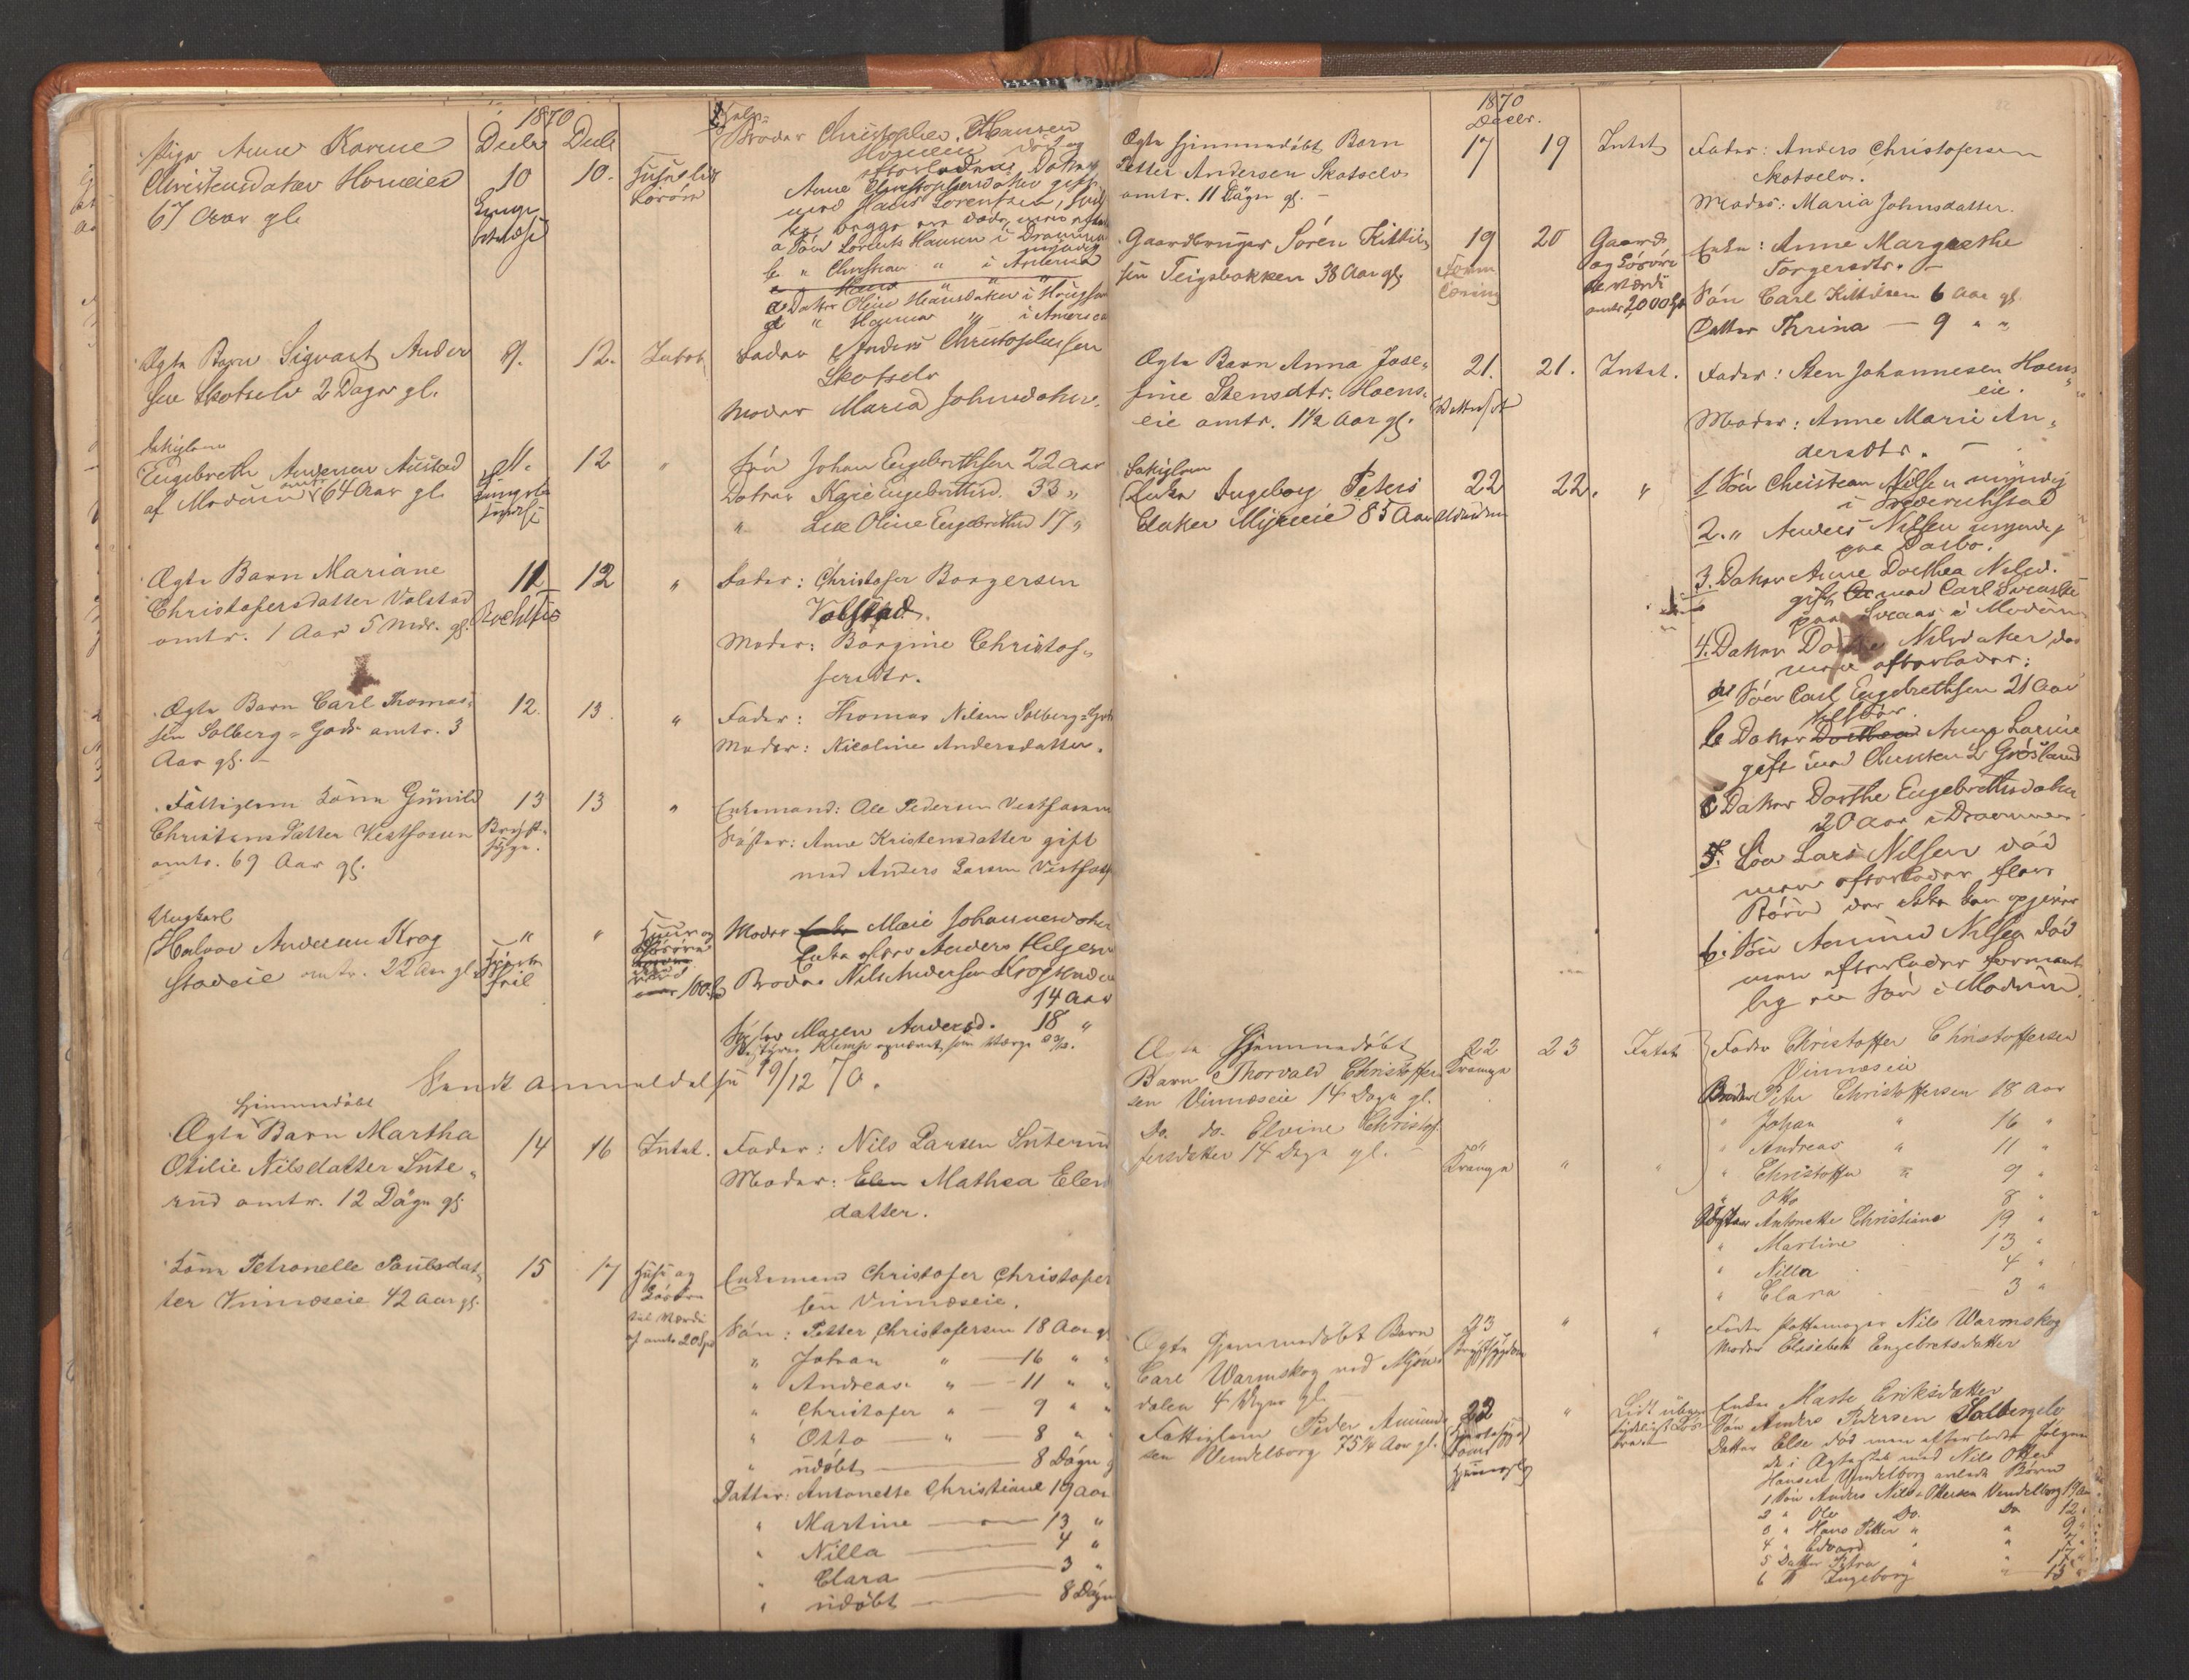 1870
Pige Anne Karine
Christensdatter Horneie
67 Aar gl.
Decbr
10
Decbr
10.
Broder Christopher Hansen
Horneie død og
efterladene Datter
Anne Christophersdatter gift
med Hans Lorentsen,
begge ere døde, men
a Søn Lorents Hansen i Drammen
myndig
b " Christian " i America
c " Hans " " "
c Datter Oline Hansdatter i
d " Hanna " i America
Ægte Barn Sigvart Ander
sen Skotselv 2 Dage gl.
9.
12.
Intet
Fader Anders Christophersen
Skotselv
Moder Maria Johnsdatter.
Engebreth Andersen Austad
af Modum amtr 64 Aar gl.
11.
12
"
Søn Johan Engebrethsen 22 Aar
Datter Kari Engebrethsd. 33 "
" Lise Oline Engebrethsd 17 "
Ægte Barn Mariane
Christofersdatter Volstad
omtr. 1 Aar 5 Mdr. gl.
11
12
"
Fader: Christofer Borgersen
Volstad.
Moder: Børgine Christof-
fersdtr.
Ægte Barn Carl Thomas-
sen Solberg-Gods omtr. 3
Aar gl. -
12.
13.
"
Fader: Thomas Nilsen Solberg-
Moder: Nicoline Andersdatter.
Fattiglem Kone Gunild
Christensdatter Vestfossen
omtr. 69 Aar gl.
13
Bryst-
syge.
13
"
Enkemand: Ole Pedersen Vestfossen
Søster: Anne Kristensdatter gift
med Anders Larsen Vestfoss
Ungkarl
Halvor Andersen Krog
stadeie omtr. 22 Aar gl.
"
"
100
Moder Mari Johannesdatter
Enke efter Anders Helgesen
Broder Nils Andersen Krogstadeie
14 Aar
Søster Maren Andersd. 18 "
Sendt Anmeldelse 19/12 70.
Hjemmedøbt
Ægte Barn Martha
Otilie Nilsdatter Sute-
rud omtr. 12 Døgn gl.
14
16
Intet.
Fader: Nils Larsen Suterud
Moder: Elen Mathea Elen
datter.
Kone Petronelle Paulsdat-
ter Vinnæseie 42 Aar gl.
15
17
Huse og
Løsøre
til Værdi
af omtr 20 Spd
Enkemand Christofer Christofer
sen Vinnæseie.
Søn: Petter Christofersen 18 Aar gl
" Johan " — 16 " "
" Andreas " — 11 " "
" Christofer " — 9 " "
" Otto — " — 8 " "
" udøbt — 8 Døgn g
Datter: Antonette Christiane 19 Aar
" Martine — 13 "
" Nilla — 4 "
" Clara — 3 "
" udøbt — 8 Døgn
1870
Decbr.
Ægte hjemmedøbt Barn
Petter Andersen Skotselv
omtr. 11 Døgn gl. -
17
19
Intet
Fader: Anders Christofersen
Skotselv.
Moder: Maria Johnsdatter.
Gaardbruger Søren Kittil-
sen Teigsbakken 38 Aar gl.
19
20
Gaard
og Løsøre
omtr 2,000 Spd
Enke: Anne Margrethe
Torgersdtr. -
Søn Carl Kittilsen 6 Aar gl.
Datter Thrina — 9 " "
Ægte Barn Anna Jose-
fine Stensdtr. Hoens-
eie omtr. 1½ Aar gl.
21.
21.
Intet.
Fader: Sten Johannesen Hoens
eie.
Moder: Anne Marie An-
dersdtr. -
Enke Ingeborg Peters
datter Myreeie 85 Aar
22
22.
"
1 Søn Christian Nilsen myndig
i Frederikstad
2. " Anders Nilsen myndig
paa Darbo.
3. Datter Anne Dorthea Nilsd.
gift med Carl Svenske
paa Sveaas i Modum
4. Datter Dorthe Nilsdatter død
men efterlader:
a Søn Carl Engebrethsen 21 Aar
b Datter Dorthea Anne Laurine
gift med Christen L Grøsland
c Datter Dorthe Engebrethsdatter
20 Aar i Drammen
5. Søn Lars Nilsen død
men efterlader flere
Børn der ikke kan opgives
6. Søn Amund Nilsen død
men efterlader forment
lig en Søn i Modum.
Ægte Hjemmedøbt
Barn Thorvald Christoffer
sen Vinnæseie 14 Dage gl.
22
Krampe
23
Intet
Fader Christoffer Christoffersen
Vinnæseie
Brødre Peter Christoffersen 18 Aar
" Johan " 16 "
" Andreas " 11 "
" Christoffer " 9 "
" Otto 8 "
Søstre Antonette Christiane 19 "
" Martine 13 "
" Nilla 4 "
" Clara 3 "
Do. do. Elvine Christof
fersdatter 14 Dage gl. -
"
Krampe
"
"
Ægte Hjemmedøbt Barn
Carl Warmskog ved Mjøn-
dalen 4 Døgn gl.
23
Brystsygdom
"
"
Fader Pottemager Nils Warmskog
Moder Elisebet Engebretsdatter
Fattiglem Peder Amund
sen Vendelborg 75½ Aar gl.
22
"
Enke Marte Eriksdatter
Søn Anders Pedersen Solbergelv
Datter Else død men efterlader følgen
de i Ægteskab med Nils Otter
Hansen Vendelborg avlede Børn
1 Søn Anders Nils Ottersen Vendelborg 19 Aar
2 " Ole Do. Do. 12 "
3 " Hans Petter " " 9 "
4 " Edvard " " 7 "
5 Datter Petra " " 17 "
6 " Ingeborg " 15 "